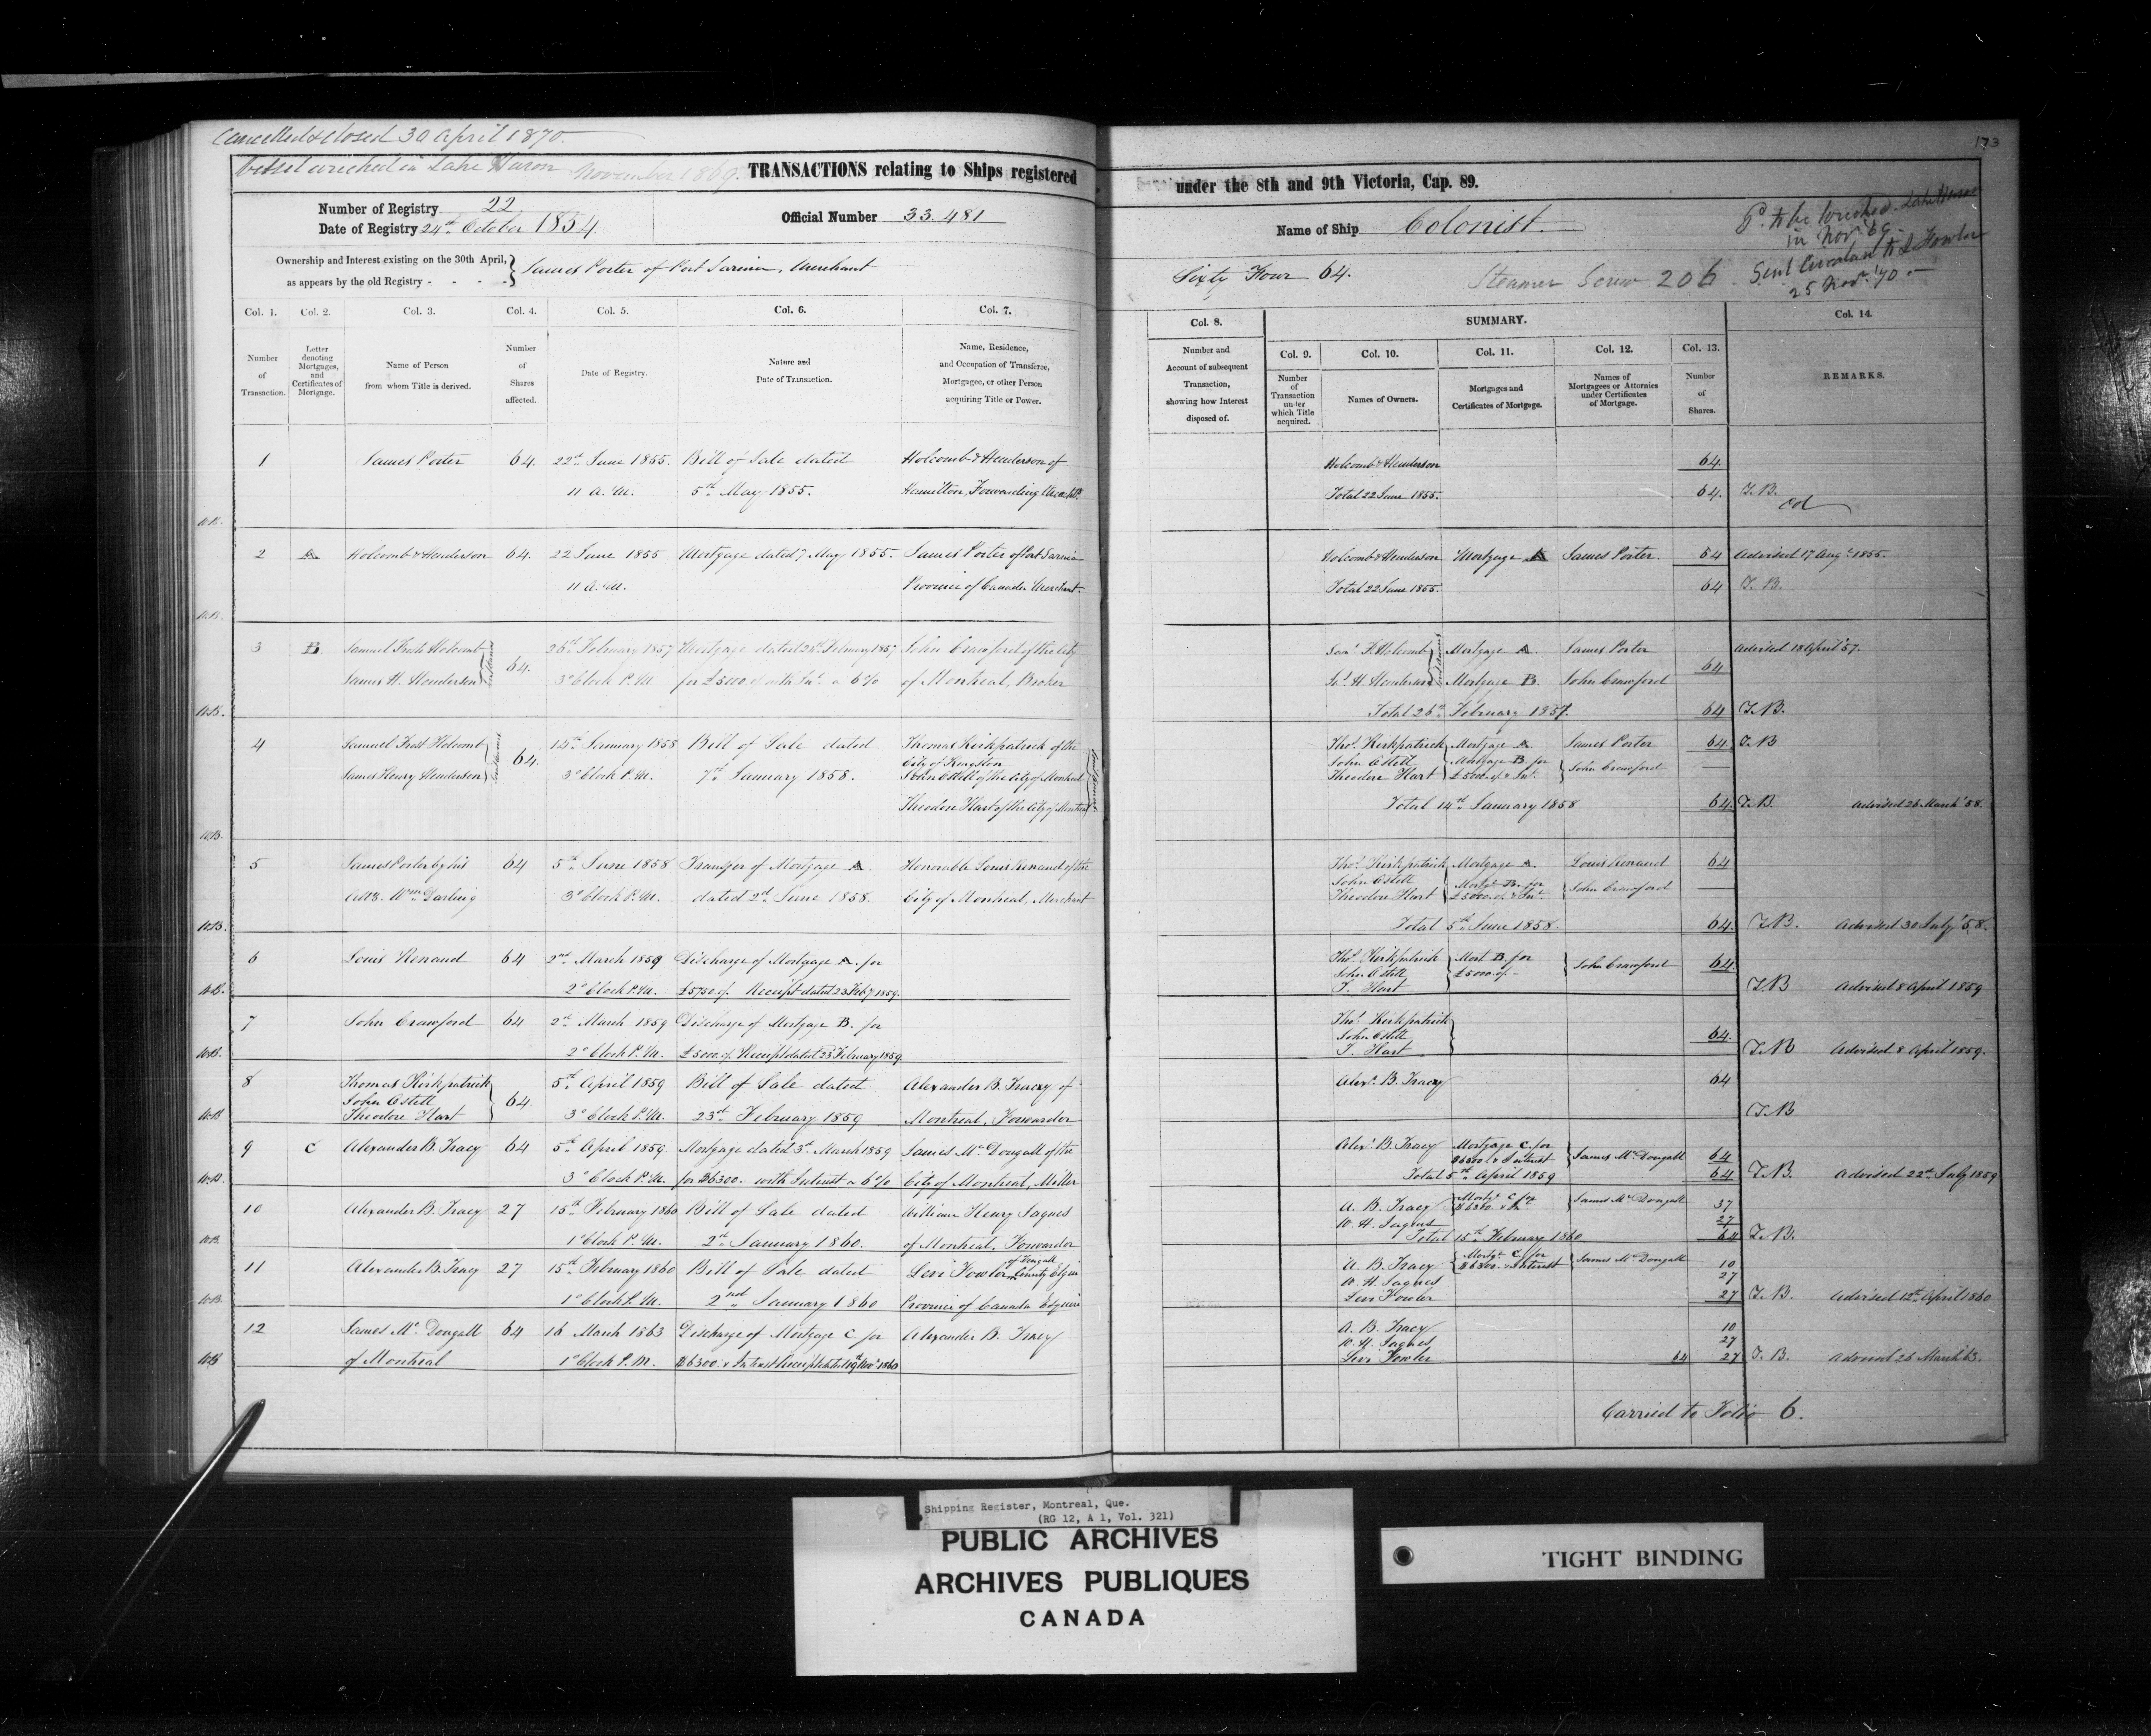 Cancelled & closed 30 April 1870
Vessel wrecked in Lake Huron November 1869.
TRANSACTIONS relating to Ships registered
Number of Registry 22
Date of Registry 24th October 1854
Official Number 33.481
Ownership and Interest existing on the 30th April,
as appears by the old Registry - - - -
James Porter of Port Sarnia, Merchant
Col. 1. Col. 2. Col. 3. Col. 4. Col. 5. Col. 6. Col. 7.
Number of Transaction.
Letter denoting Mortgages, and Certificates of Mortgage.
Name of Person from whom Title is derived.
Number of Shares affected.
Date of Registry.
Nature and Date of Transaction.
Name, Residence, and Occupation of Transferee, Mortgagee, or other Person acquiring Title or Power.
1 James Porter 64. 22nd June 1855. Bill of Sale dated Holcomb & Henderson of
11 A.M. 5th May 1855. Hamilton, Forwarding Merchts
W.B.
2 A Holcomb & Henderson 64. 22 June 1855 Mortgage dated 7 May 1855. James Porter of Port Sarnia
11 A.M. Province of Canada Merchant.
W.B.
3 B. Samuel Frost Holcomb 64. 26th February 1857 Mortgage dated 26th February 1857 John Crawford of the City
James H. Henderson 3 o'Clock P.M. for £5000 with Int. a 6% of Montreal, Broker
W.B.
4 Samuel Frost Holcomb 64. 14th January 1858 Bill of Sale dated Thomas Kirkpatrick of the City of Kingston
James Henry Henderson 3 o'Clock P.M. 7th January 1858. John Ostell of the City of Montreal
Theodore Hart of the City of Montreal
W.B.
5 James Porter by his 64 5th June 1858 Transfer of Mortgage A. Honorable Louis Renaud of the
Atty. Wm Darling 3 o'Clock P.M. dated 2nd June 1858. City of Montreal, Merchant
W.B.
6 Louis Renaud 64 2nd March 1859 Discharge of Mortgage A. for
2 o'Clock P.M. £5750. Receipt dated 23 Feby 1859.
W.B.
7 John Crawford 64 2nd March 1859 Discharge of Mortgage B. for
2 o'Clock P.M. £5000. Receipt dated 23 February 1859
W.B.
8 Thomas Kirkpatrick 64. 5th April 1859 Bill of Sale dated Alexander B. Tracey of
John Ostell
Theodore Hart 3 o'Clock P.M. 23rd February 1859 Montreal, Forwarder
W.B.
9 C Alexander B. Tracy 64 5th April 1859. Mortgage dated 3rd March 1859 James McDougall of the
3 o'Clock P.M. for $6300. with Interest a 6% City of Montreal, Miller
W.B.
10 Alexander B. Tracy 27 15th February 1860 Bill of Sale dated William Henry Jaques
1 o'Clock P.M. 2nd January 1860. of Montreal, Forwarder
W.B.
11 Alexander B. Tracy 27 15th February 1860 Bill of Sale dated Levi Fowler of Fingall County Elgin
1 o'Clock P.M. 2nd January 1860 Province of Canada Esquire
W.B.
12 James McDougall 64 16 March 1863 Discharge of Mortgage C for Alexander B. Tracy
of Montreal 1 o'Clock P.M. $6300. & Interest Receipt dated 19th Novr 1860
W.B
173
under the 8th and 9th Victoria, Cap. 89.
Name of Ship Colonist.
Sixty Four 64.
Steamer Screw 206.
Pd. to be wrecked Lake Huron
in Nov. 69.
Sent Circular to L Fowler
25 Nov. '70.
Col. 8. SUMMARY. Col. 14.
Col. 9. Col. 10. Col. 11. Col. 12. Col. 13.
Number and Account of subsequent Transaction, showing how Interest disposed of.
Number of Transaction under which Title acquired.
Names of Owners.
Mortgages and Certificates of Mortgage.
Names of Mortgagees or Attornies under Certificates of Mortgage.
Number of Shares.
REMARKS.
Holcomb & Henderson 64.
Total 22 June 1855. 64. T.B.
Holcomb & Henderson Mortgage A James Porter. 64 Advised 17 Augt. 1855.
Total 22 June 1855. 64 T.B.
Saml. F. Holcomb Mortgage A. James Porter Advised 18 April '57.
64
Jas. H Henderson Mortgage B. John Crawford
Total 26th February 1857. 64 T.B.
Thos. Kirkpatrick Mortgage A. James Porter 64. T.B
John Ostell Mortgage B. for
Theodore Hart £5000. & Int. John Crawford
Total 14th January 1858 64. T.B. Advised 26 March '58.
Thos. Kirkpatrick Mortgage A. Louis Renaud 64
John Ostell Mortge. B. for
Theodore Hart £5000. & Int. John Crawford
Total 5th June 1858. 64. T.B. Advised 30 July '58.
Thos. Kirkpatrick Mort B. for
John Ostell £5000. John Crawford 64.
T. Hart T.B Advised 8 April 1859
Thos. Kirkpatrick
John Ostell 64.
T. Hart T.B Advised 8 April 1859.
Alexr. B. Tracey 64
T.B
Alexr. B. Tracy Mortgage C. for
$6300 & Interest James McDougall 64
Total 5th April 1859 64 T.B. Advised 22nd July 1859
A. B. Tracy Mortge. C for James McDougall 37
W. H. Jaques 27
Total 15th February 1860 64 T.B.
A. B. Tracy Mortge. C. for
$6300. & Interest James McDougall 10
W. H. Jaques 27
Levi Fowler 27 T.B. Advised 12th April 1860
A. B. Tracy 10
W. H. Jaques 27
Levi Fowler 64 27 T.B. Advised 26 March 63.
Carried to Folio 6.
Shipping Register, Montreal, Que.
(RG 12, A 1, Vol. 321)
PUBLIC ARCHIVES
ARCHIVES PUBLIQUES
CANADA
TIGHT BINDING